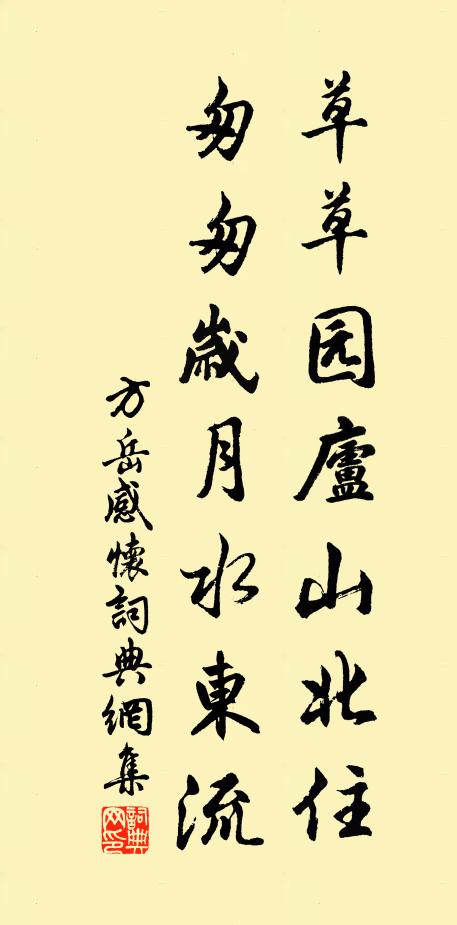 草草园廬山北住
匆匆歲月水東流
方岳感懷詞典網集
詞典網印